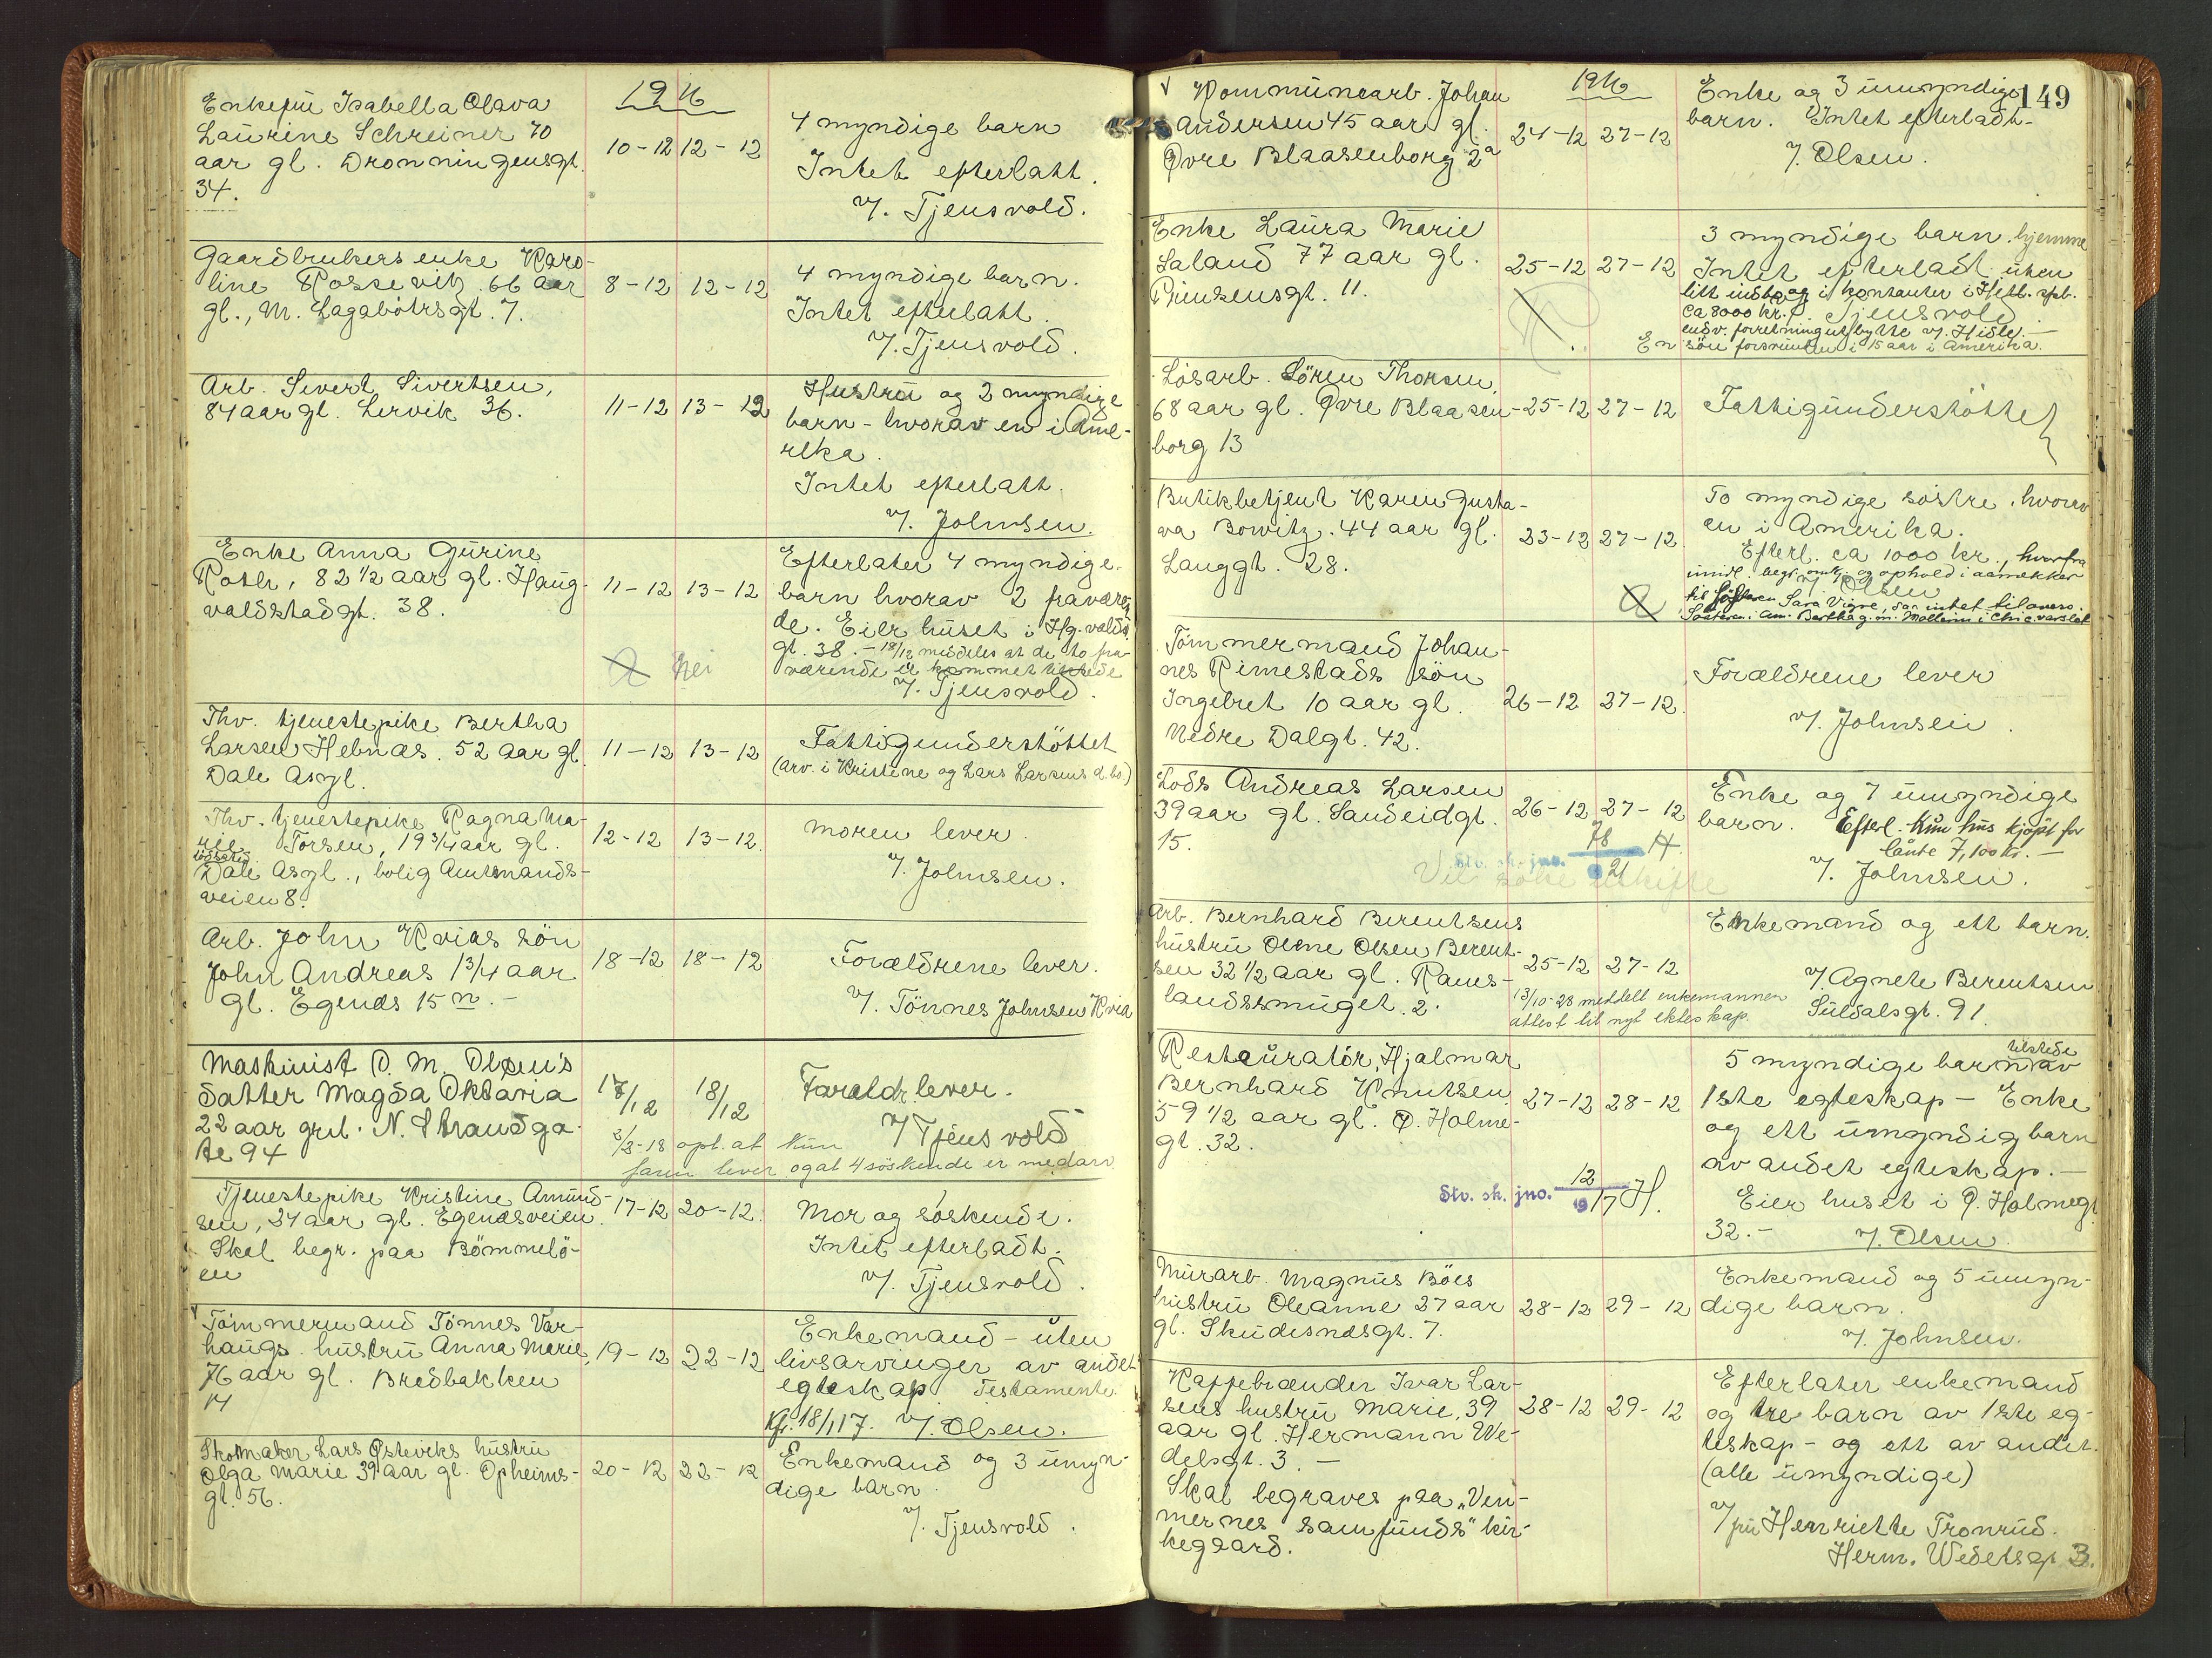 1916
Enkefru Isabella Olava
Laurine Schreiner 70
aar gl. Dronningensgt.
34.
10-12 12-12
4 myndige barn
Intet efterlatt.
v/. Tjensvold.
Gaardbrukers enke Karo-
line Rossevitz. 66 aar
gl., M. Lagabøtrsgt. 7.
8-12 12-12
4 myndige barn.
Intet efterlatt.
v/. Tjensvold.
Arb. Sivert Sivertsen,
84 aar gl. Lervik 36.
11-12 13-12
Hustru og 2 myndige
barn - hvorav en i Ame-
rika.
Intet efterlatt.
v/. Johnsen.
Enke Anna Gurine
82 1/2 aar gl. Haug-
valdstadgt. 38.
11-12 13-12
nei
Efterlater 4 myndige
barn hvorav 2 fraværen
de. Eier huset i Hg.valds
gt. 38. - 18/12 meddeles at de to fra-
værende er kommet tilstede
v/. Tjensvold.
Thv. tjenestepike Bertha
Larsen Hebnæs. 52 aar gl.
Dale Asyl.
11-12 13-12
Fattigunderstöttet
(arv. i Kristine og Lars Larsens d.bo.)
Thv. tjenestepike Ragna Ma-
rie Torsen, 19 3/4 aar gl.
Dale Asyl., bolig Amtmands-
veien 8.
12-12 13-12
moren lever.
v/. Johnsen.
Arb. John Kvias sön
John Andreas 1 3/4 aar
gl. Egenes 15 n. -
18-12 18-12
Forældrene lever.
v/. Tönnes Johnsen Kvia
Maskinist O. M. Olsen's
datter Magda Oktavia
22 aar gml. N. Strandga
te 94
17/12 18/12
Forældr. lever.
v/ Tjensvold
2/3-18 opl. at kun
faren lever og at 4 söskende er medarv.
Tjenestepike Kristine Amund-
sen, 24 aar gl. Egenæsveien.
Skal begr. paa Bömmelö-
en
17-12 20-12.
Mor og söskende.
Intet efterladt.
v/. Tjensvold.
Tömmermand Tönnes Var-
haugs hustru Anna Marie,
76 aar gl. Bredbakken
14
19-12 22-12
Enkemand - uten
livsarvinger av andet
egteskap. Testamente.
Kfr. 18/1 17. v/. Olsen.
Skomaker Lars Østeviks hustru
Olga Marie 39 aar gl. Opheims-
gt. 56.
20-12 22-12
Enkemand og 3 umyn-
dige barn.
v/. Tjensvold.
149
1916
Kommunearb. Johan
Andersen 45 aar gl.
Øvre Blaasenborg 2a
24-12 27-12
Enke og 3 umyndige
barn. Intet efterladt.
v/. Olsen.
Enke Laura Marie
Laland 77 aar gl.
Prinsensgt. 11.
25-12 27-12
3 myndige barn. hjemme
Intet efterladt uten
litt indbo og i kontanter i Hetl. spb.
ca 8000 kr. v/. Tjensvold.
endv. forretningutbytte v/. Hidle. -
En sön forsvunden i 15 aar i Amerika.
Lösarb. Sören Thorsen,
68 aar gl. Øvre Blaasen-
borg 13
25-12 27-12
Fattigunderstötte
Butikbetjent Karen Gusta-
va Bowitz. 44 aar gl.
Langgt. 28.
23-12 27-12.
To myndige söstre, hvorav
en i Amerika.
Efterl. ca 1000 kr., hvorfra
begr. omk. og ophold i aarrækker
v/ Olsen
til Søsteren Sara Vigre, saa intet til overs.
Søsteren i Am. Bertha g.m. i varslet
Tömmermand Johan-
nes Rimestads sön
Ingebret 10 aar gl.
Nedre Dalgt. 42.
26-12 27-12.
Forældrene lever
v/. Johnsen.
Lods Andreas Larsen
39 aar gl. Sandeidgt.
15.
26-12 27-12
Stv. sk. jno. 78/21 H.
Vil söke uskifte
Enke og 7 umyndige
barn. Efterl. kun hus kjøpt for
laante 7,100 kr. -
v/. Johnsen.
Arb. Bernhard Berentsens
hustru Oline Olsen Berent-
sen 32 1/2 aar gl. Raues-
landssmuget. 2.
25-12 27-12
13/10-28 meddelt enkemannen
attest til nyt ekteskap.
Enkemand og ett barn.
v/. Agnete Berentsen
Suldalsgt. 91.
Restauratör, Hjalmar
Bernhard Knutsen
59 1/2 aar gl. Ø. Holme-
gt. 32.
27-12 28-12
Stv. sk. jno. 12/1917 H.
5 myndige barn tilstede av
1ste egteskap - Enke
og ett umyndig barn
av andet egteskap. -
Eier huset i Ø. Holmegt.
32. - v/. Olsen.
Murarb. Magnus Böes
hustru Oleanne 27 aar
gl. Skudesnæsgt. 7.
28-12 29-12
Enkemand og 5 umyn-
dige barn.
v/. Johnsen.
Kaffebrænder Ivar Lar-
sens hustru Marie, 39
aar gl. Hermann We-
delsgt. 3. -
Skal begraves paa "Ven-
nernes samfunds" kir-
kegaard.
28-12 29-12
Efterlater enkemand
og tre barn av 1ste eg-
teskap - og ett av andet.
(alle umyndige)
v/ fru Henriette Tronrud.
Herm. Wedelsgt 3.